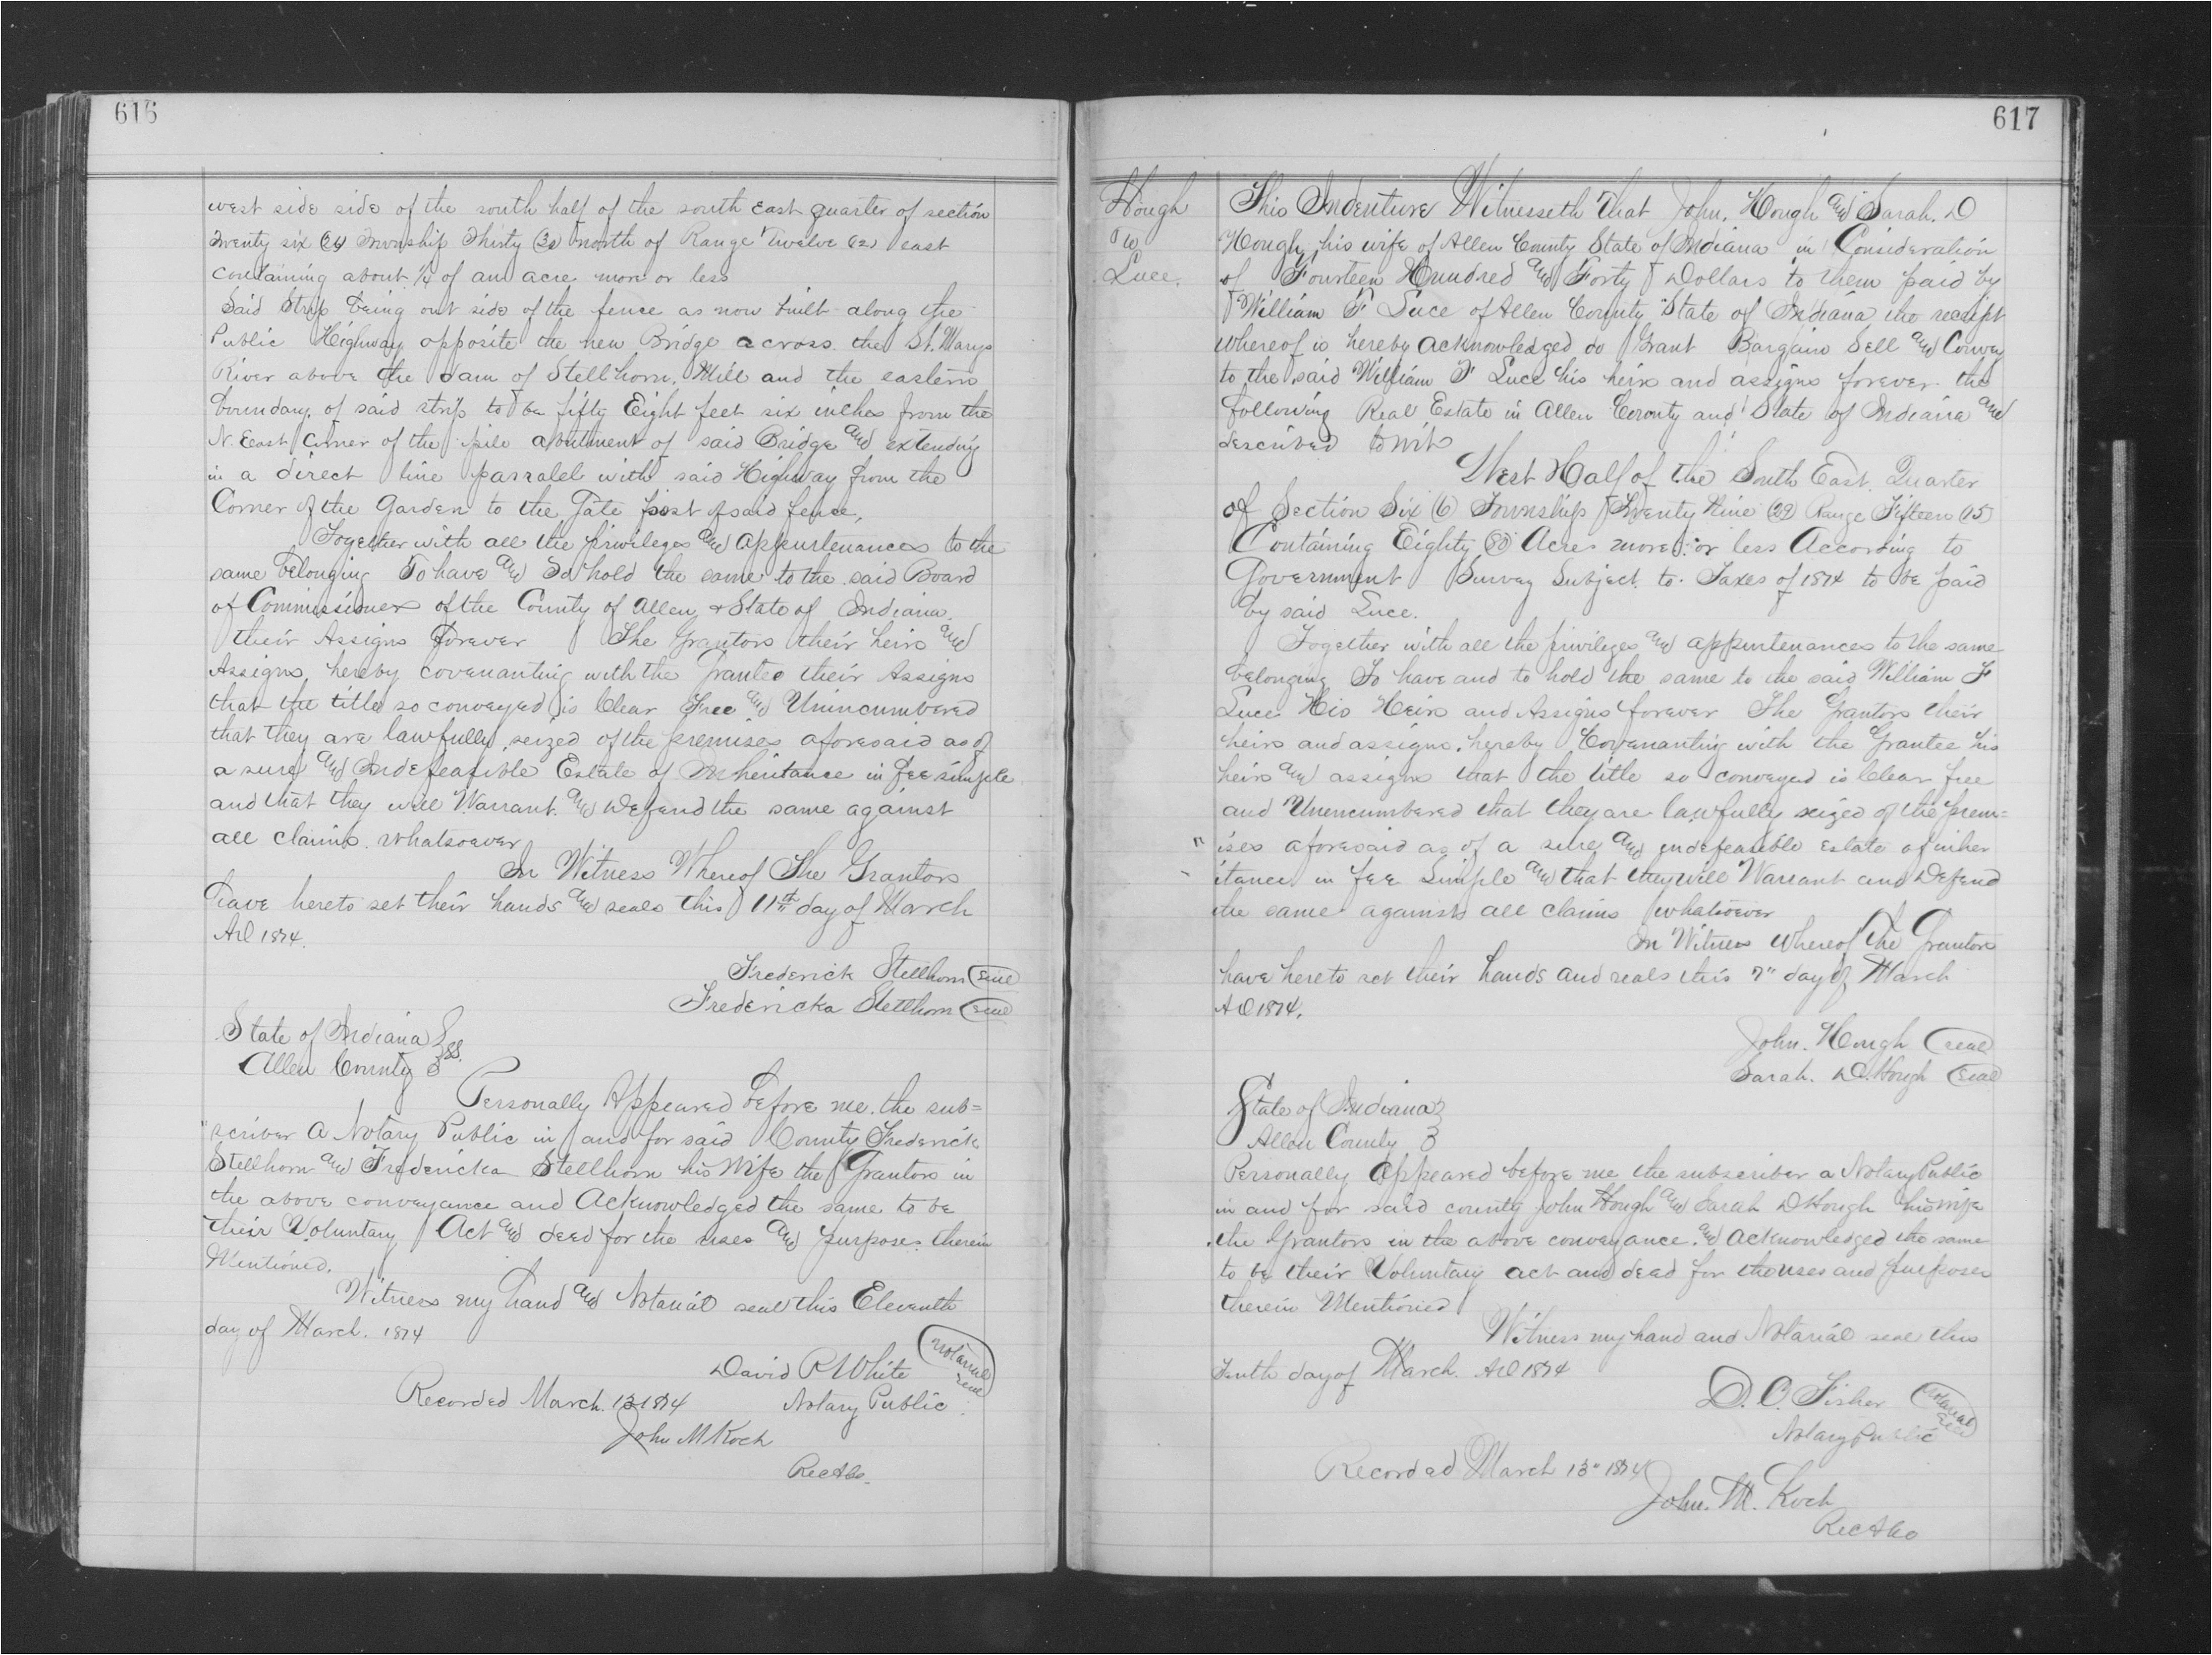 616
west side side of the south half of the south east quarter of section
Twenty six (26) Township Thirty (30) north of Range Twelve (12) east
containing about 1/4 of an acre more or less
Said Strip being out side of the fence as now built along the
Public Highway opposite the new Bridge across the St. Marys
River above the dam of Stellhorn, Mill and the eastern
boundary of said strip to be fifty Eight feet six inches from the
N. East Corner of the pile abutment of said Bridge and extending
in a direct line parralel with said Highway from the
Corner of the Garden to the Gate post of said fence,
Together with all the privileges and appurtenances to the
same belonging To have and to hold the same to the said Board
of Commissioners of the County of Allen & State of Indiana
their Assigns forever The Grantors their heirs and
Assigns, hereby covenanting with the Grantee their Assigns
that the title so conveyed is Clear Free and Unincumbered
that they are lawfully seized of the premises aforesaid as of
a sure and Indefeasible Estate of Inheritance in fee simple
and that they will Warrant and Defend the same against
all claims whatsoever
In Witness Whereof The Grantors
have hereto set their hands and seals this 11th day of March
AD 1874.
Frederick Stellhorn (Seal)
Fredericka Stellhorn (Seal)
State of Indiana } SS.
Allen County }
Personally Appeared before me the sub=
"scriber A Notary Public in and for said County Frederick
Stellhorn and Fredericka Stellhorn his Wife the Grantors in
the above conveyance and Acknowledged the same to be
their Voluntary Act and deed for the uses and purposes therein
Mentioned.
Witness my hand and Notarial seal this Eleventh
day of March. 1874
David R White (Notarial seal)
Notary Public
Recorded March. 13 1874
John M Koch
RecAco.
617
Hough
To
Luce.
This Indenture Witnesseth That John. Hough and Sarah. D
Hough, his wife of Allen County State of Indiana in Consideration
of Fourteen Hundred and Forty Dollars to them paid by
William F Luce of Allen County State of Indiana the receipt
whereof is hereby acknowledged do Grant Bargain Sell and Convey
to the said William F Luce his heirs and assigns forever the
following Real Estate in Allen County and State of Indiana and
described to wit
West Half of the South East Quarter
of Section Six (6) Township Twenty Nine (29) Range Fifteen (15)
Containing Eighty (80) Acres more or less According to
Government Survey Subject to Taxes of 1874 to be paid
by said Luce.
Together with all the privileges and appurtenances to the same
belonging To have and to hold the same to the said William F
Luce His Heirs and Assigns forever The Grantors their
heirs and assigns, hereby Covenanting with the Grantee his
heirs and assigns that the title so conveyed is Clear free
and Unencumbered that they are lawfully seized of the prem=
"ises aforesaid as of a sure and indefeasible estate of inher
itance in fee Simple and that they will Warrant and Defend
the same against all claims whatsoever
In Witness whereof The Grantors
have hereto set their hands and seals this 7" day of March
AD 1874.
John. Hough (seal)
Sarah. D. Hough (Seal)
State of Indiana }
Allen County }
Personally Appeared before me the subscriber a Notary Public
in and for said county John Hough and Sarah D Hough his wife
the Grantors in the above conveyance and Acknowledged the same
to be their Voluntary act and deed for the uses and purposes
therein Mentioned
Witness my hand and Notarial seal this
Tenth day of March. AD 1874
D. O. Fisher (Notarial seal)
Notary Public
Recorded March 13" 1874
John. M. Koch
RecAco